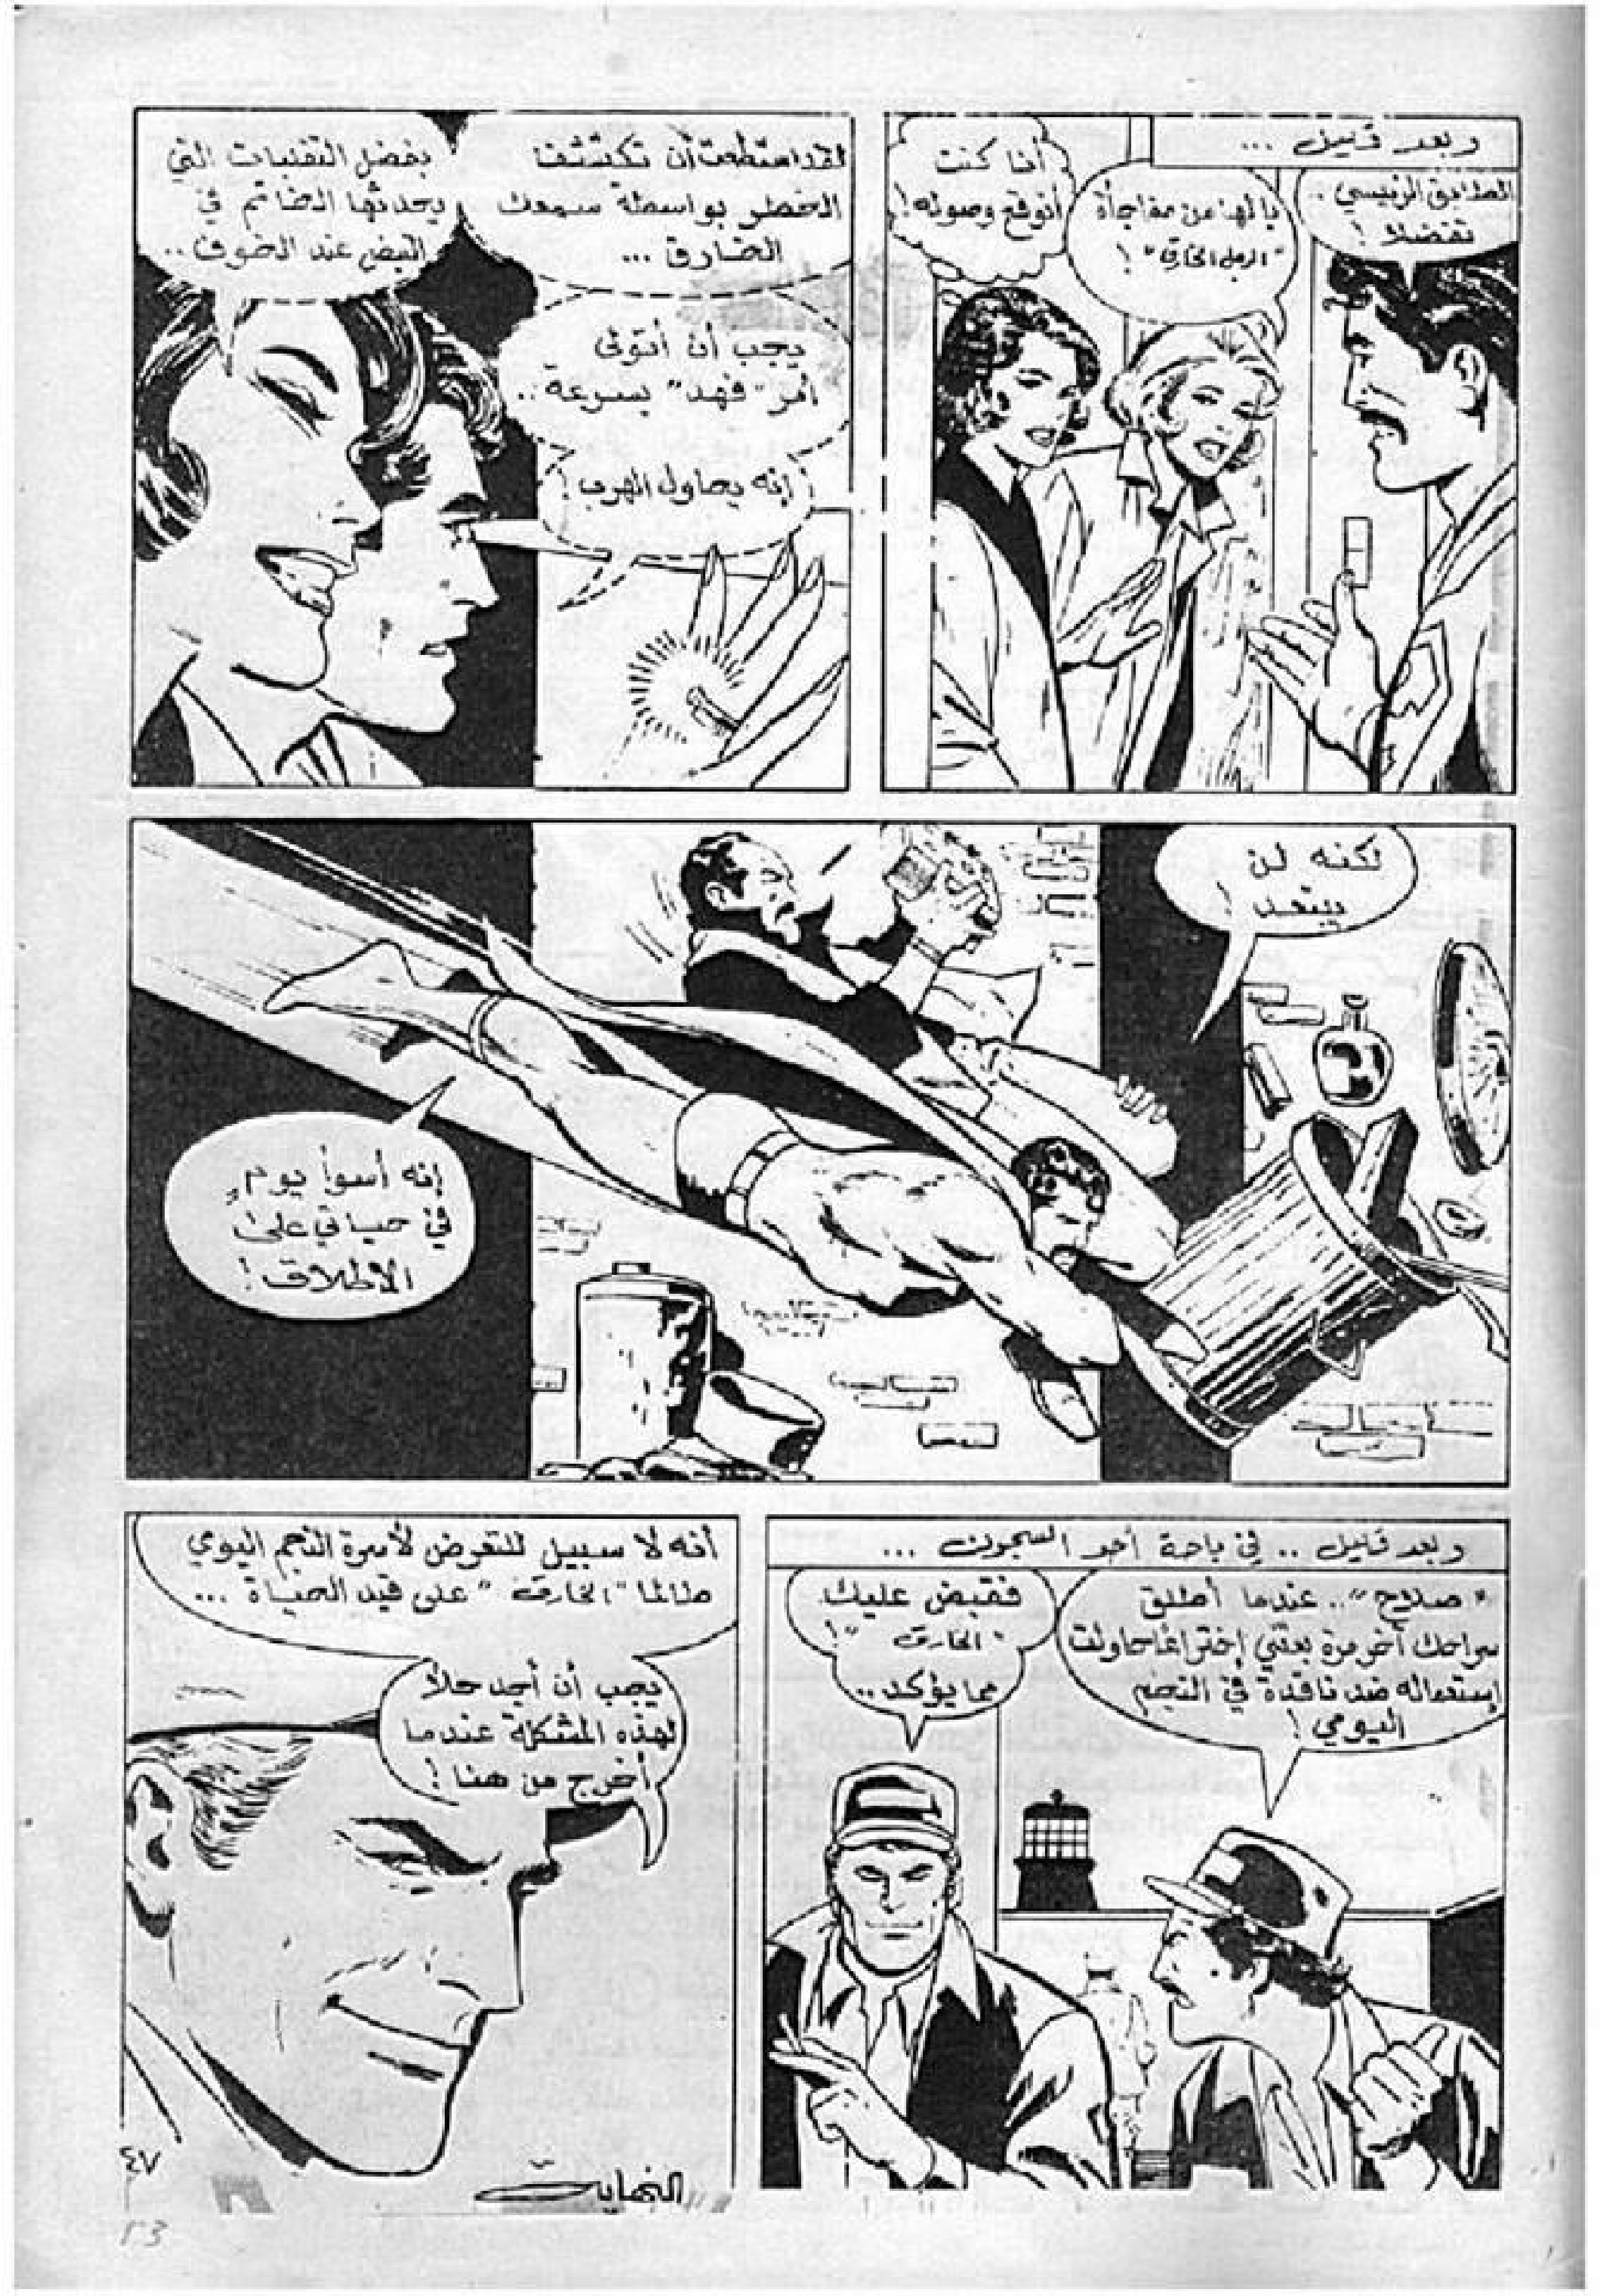 وبعد قليل ...
الطابق الرئيسي ..
تفضلا !
يا لها من مفاجأة
"الرجل الخارق" !
أنا كنت
أتوقع وصوله !
لقد استطعت أن تكتشف
الخطر بواسطة سمعك
الخارق ...
بفضل التقلبات التي
يحدثها الخاتم في
النبض عند الخوف ..
يجب أن أتولى
أمر "فهد" بسرعة ..
إنه يحاول الهرب !
لكنه لن
يبتعد !
إنه أسوأ يومٍ
في حياتي على
الإطلاق !
وبعد قليل .. في باحة أحد السجون ...
"صلاح" .. عندما أطلق
سراحك آخر مرة بعتني إختراعًا حاولت
إستعماله ضد ناقدة في النجم
اليومي !
فقبض عليك
"الخارق" !
مما يؤكد ..
أنه لا سبيل للتعرض لأسرة النجم اليومي
طالما "الخارق" على قيد الحياة ...
يجب أن أجد حلاً
لهذه المشكلة عندما
أخرج من هنا !
النهاية
٤٧